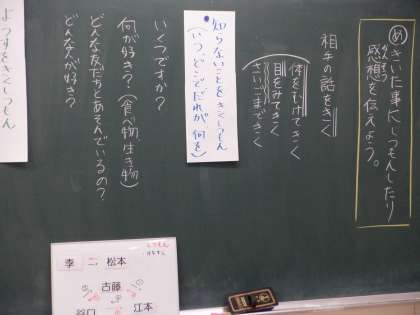 め きいた事にしつもんしたり
感想を伝えよう。
かんそう
相手の話をきく
体をむけてきく
目をみてきく
さいごまできく
知らないことをきくしつもん
(いつ、どこで、だれが、何を)
いくつですか?
何が好き?(食べ物、生き物)
どんな友だちとあそんでいるの?
どんな女が好き?
ようすをきくしつもん
李
松本
古藤
谷口
江本